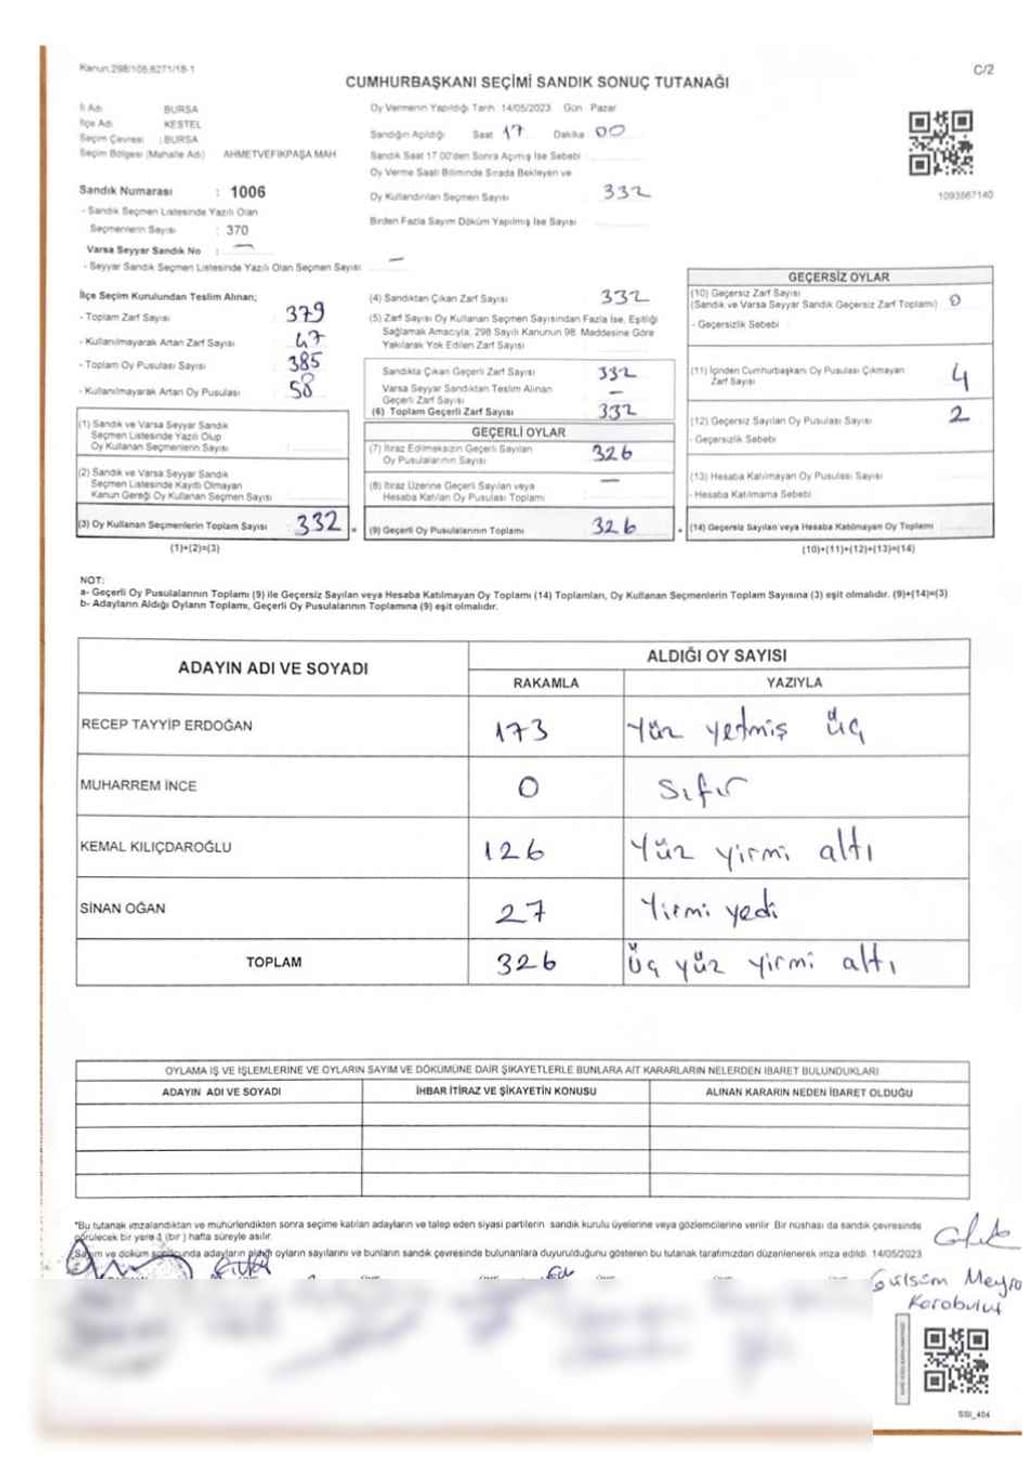 Kanun:298/105,6271/18-1
C/2
CUMHURBAŞKANI SEÇİMİ SANDIK SONUÇ TUTANAĞI
İl Adı BURSA
İlçe Adı KESTEL
Seçim Çevresi : BURSA
Seçim Bölgesi (Mahalle Adı) AHMETVEFİKPAŞA MAH
Sandık Numarası : 1006
- Sandık Seçmen Listesinde Yazılı Olan
Seçmenlerin Sayısı : 370
Varsa Seyyar Sandık No : —
- Seyyar Sandık Seçmen Listesinde Yazılı Olan Seçmen Sayısı —
Oy Vermenin Yapıldığı Tarih 14/05/2023 Gün Pazar
Sandığın Açıldığı Saat 17 Dakika 00
Sandık Saat 17 00'den Sonra Açılmış İse Sebebi
Oy Verme Saati Bitiminde Sırada Bekleyen ve
Oy Kullandırılan Seçmen Sayısı 332
Birden Fazla Sayım Döküm Yapılmış İse Sayısı
1093567140
İlçe Seçim Kurulundan Teslim Alınan;
- Toplam Zarf Sayısı 379
- Kullanılmayarak Artan Zarf Sayısı 47
- Toplam Oy Pusulası Sayısı 385
- Kullanılmayarak Artan Oy Pusulası 58
(1) Sandık ve Varsa Seyyar Sandık
Seçmen Listesinde Yazılı Olup
Oy Kullanan Seçmenlerin Sayısı
(2) Sandık ve Varsa Seyyar Sandık
Seçmen Listesinde Kayıtlı Olmayan
Kanun Gereği Oy Kullanan Seçmen Sayısı
(3) Oy Kullanan Seçmenlerin Toplam Sayısı 332 =
(1)+(2)=(3)
(4) Sandıktan Çıkan Zarf Sayısı 332
(5) Zarf Sayısı Oy Kullanan Seçmen Sayısından Fazla İse, Eşitliği
Sağlamak Amacıyla, 298 Sayılı Kanunun 98. Maddesine Göre
Yakılarak Yok Edilen Zarf Sayısı
Sandıkta Çıkan Geçerli Zarf Sayısı 332
Varsa Seyyar Sandıktan Teslim Alınan
Geçerli Zarf Sayısı —
(6) Toplam Geçerli Zarf Sayısı 332
GEÇERLİ OYLAR
(7) İtiraz Edilmeksizin Geçerli Sayılan
Oy Pusulalarının Sayısı 326
(8) İtiraz Üzerine Geçerli Sayılan veya
Hesaba Katılan Oy Pusulası Toplamı —
(9) Geçerli Oy Pusulalarının Toplamı 326 +
GEÇERSİZ OYLAR
(10) Geçersiz Zarf Sayısı
(Sandık ve Varsa Seyyar Sandık Geçersiz Zarf Toplamı) 0
- Geçersizlik Sebebi
(11) İçinden Cumhurbaşkanı Oy Pusulası Çıkmayan
Zarf Sayısı 4
(12) Geçersiz Sayılan Oy Pusulası Sayısı 2
- Geçersizlik Sebebi
(13) Hesaba Katılmayan Oy Pusulası Sayısı
- Hesaba Katılmama Sebebi
(14) Geçersiz Sayılan veya Hesaba Katılmayan Oy Toplamı
(10)+(11)+(12)+(13)=(14)
NOT:
a- Geçerli Oy Pusulalarının Toplamı (9) ile Geçersiz Sayılan veya Hesaba Katılmayan Oy Toplamı (14) Toplamları, Oy Kullanan Seçmenlerin Toplam Sayısına (3) eşit olmalıdır. (9)+(14)=(3)
b- Adayların Aldığı Oyların Toplamı, Geçerli Oy Pusulalarının Toplamına (9) eşit olmalıdır.
ADAYIN ADI VE SOYADI
ALDIĞI OY SAYISI
RAKAMLA YAZIYLA
RECEP TAYYİP ERDOĞAN 173 Yüz yetmiş üç
MUHARREM İNCE 0 Sıfır
KEMAL KILIÇDAROĞLU 126 Yüz yirmi altı
SİNAN OĞAN 27 Yirmi yedi
TOPLAM 326 Üç yüz yirmi altı
OYLAMA İŞ VE İŞLEMLERİNE VE OYLARIN SAYIM VE DÖKÜMÜNE DAİR ŞİKAYETLERLE BUNLARA AİT KARARLARIN NELERDEN İBARET BULUNDUKLARI
ADAYIN ADI VE SOYADI İHBAR İTİRAZ VE ŞİKAYETİN KONUSU ALINAN KARARIN NEDEN İBARET OLDUĞU
*Bu tutanak imzalandıktan ve mühürlendikten sonra seçime katılan adayların ve talep eden siyasi partilerin sandık kurulu üyelerine veya gözlemcilerine verilir Bir nüshası da sandık çevresinde
görülecek bir yere 1 (bir) hafta süreyle asılır
Sayım ve döküm sonucunda adayların aldığı oyların sayılarını ve bunların sandık çevresinde bulunanlara duyurulduğunu gösteren bu tutanak tarafımızdan düzenlenerek imza edildi. 14/05/2023
Gülsüm Meyra
Karabulut